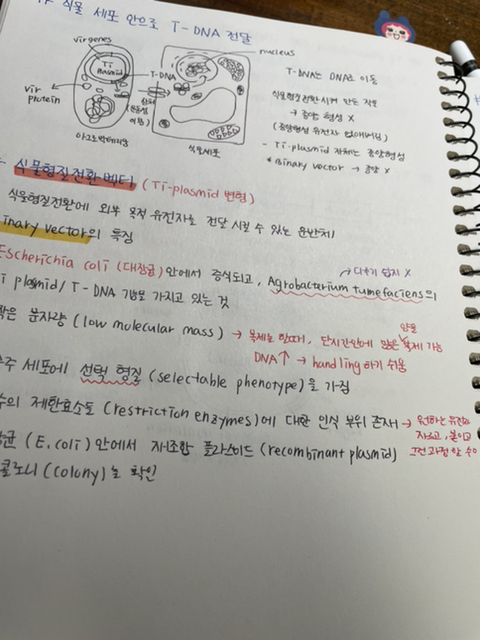 식물 세포 안으로 T-DNA 전달
vir genes
nucleus
Ti
Plasmid
T-DNA
T-DNA는 DNA로 이동
vir
protein
식물형질전환시켜 만든 식물
→ 종양 형성 X
(종양형성 유전자 없애버림)
- Ti-plasmid 자체는 종양형성
* Binary vector → 종양 X
아그로박테리움
식물세포
식물형질전환 벡터 (Ti-plasmid 변형)
식물형질전환에 외부 목적 유전자를 전달 시킬 수 있는 운반체
inary vector의 특징
Escherichia coli (대장균) 안에서 증식되고, Agrobacterium tumefaciens의
→ 다루기 쉽지 X
i plasmid / T-DNA 가지고 있는 것
작은 분자량 (low molecular mass) → 복제능, 단시간안에 많은 복제 가능
양을
DNA↑ → handling하기 쉬움
숙주 세포에 선택 형질 (selectable phenotype)을 가짐
수의 제한효소들 (restriction enzymes)에 대한 인식 부위 존재 → 원하는 유전자
자르고, 붙이고
균 (E.coli) 안에서 재조합 플라스미드 (recombinant plasmid)
그런 과정 할 수
콜로니 (colony)로 확인